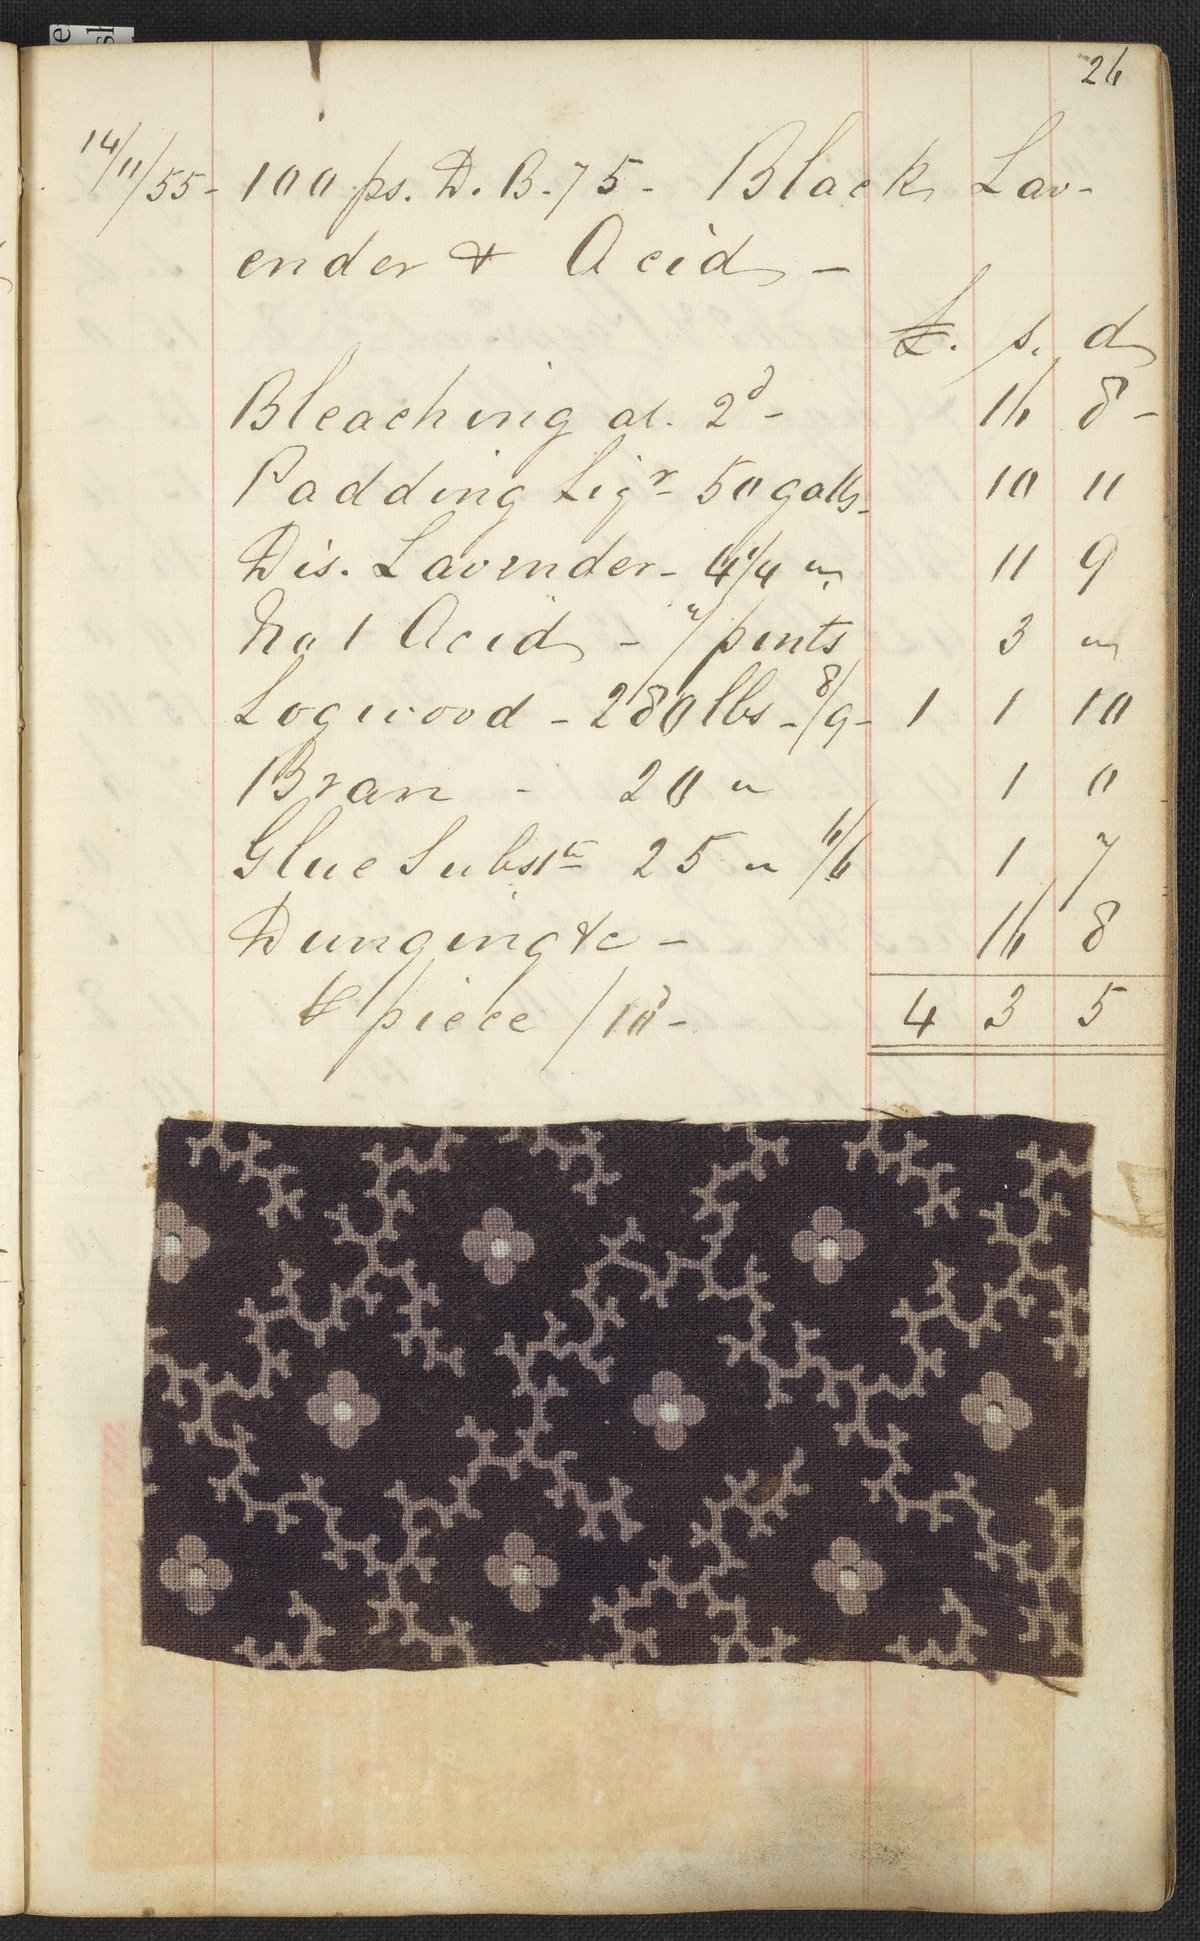 26
14/11/55 - 100 ps. D. B. 75 - Black Lav-
ender & Acid -
£. s. d
Bleaching at. 2d - 16 8 -
Padding Liqr - 50 galls - 10 11
Dis. Lavender - 4 1/4 " 11 9
No 1 Acid - 7 pints 3 "
Logwood - 280 lbs - 8/9 - 1 1 10
Bran - 20 " 1 0
Glue Subste 25 " 6/6 1 7
Dunging &c - 16 8
⅌ piece /10d - 4 3 5